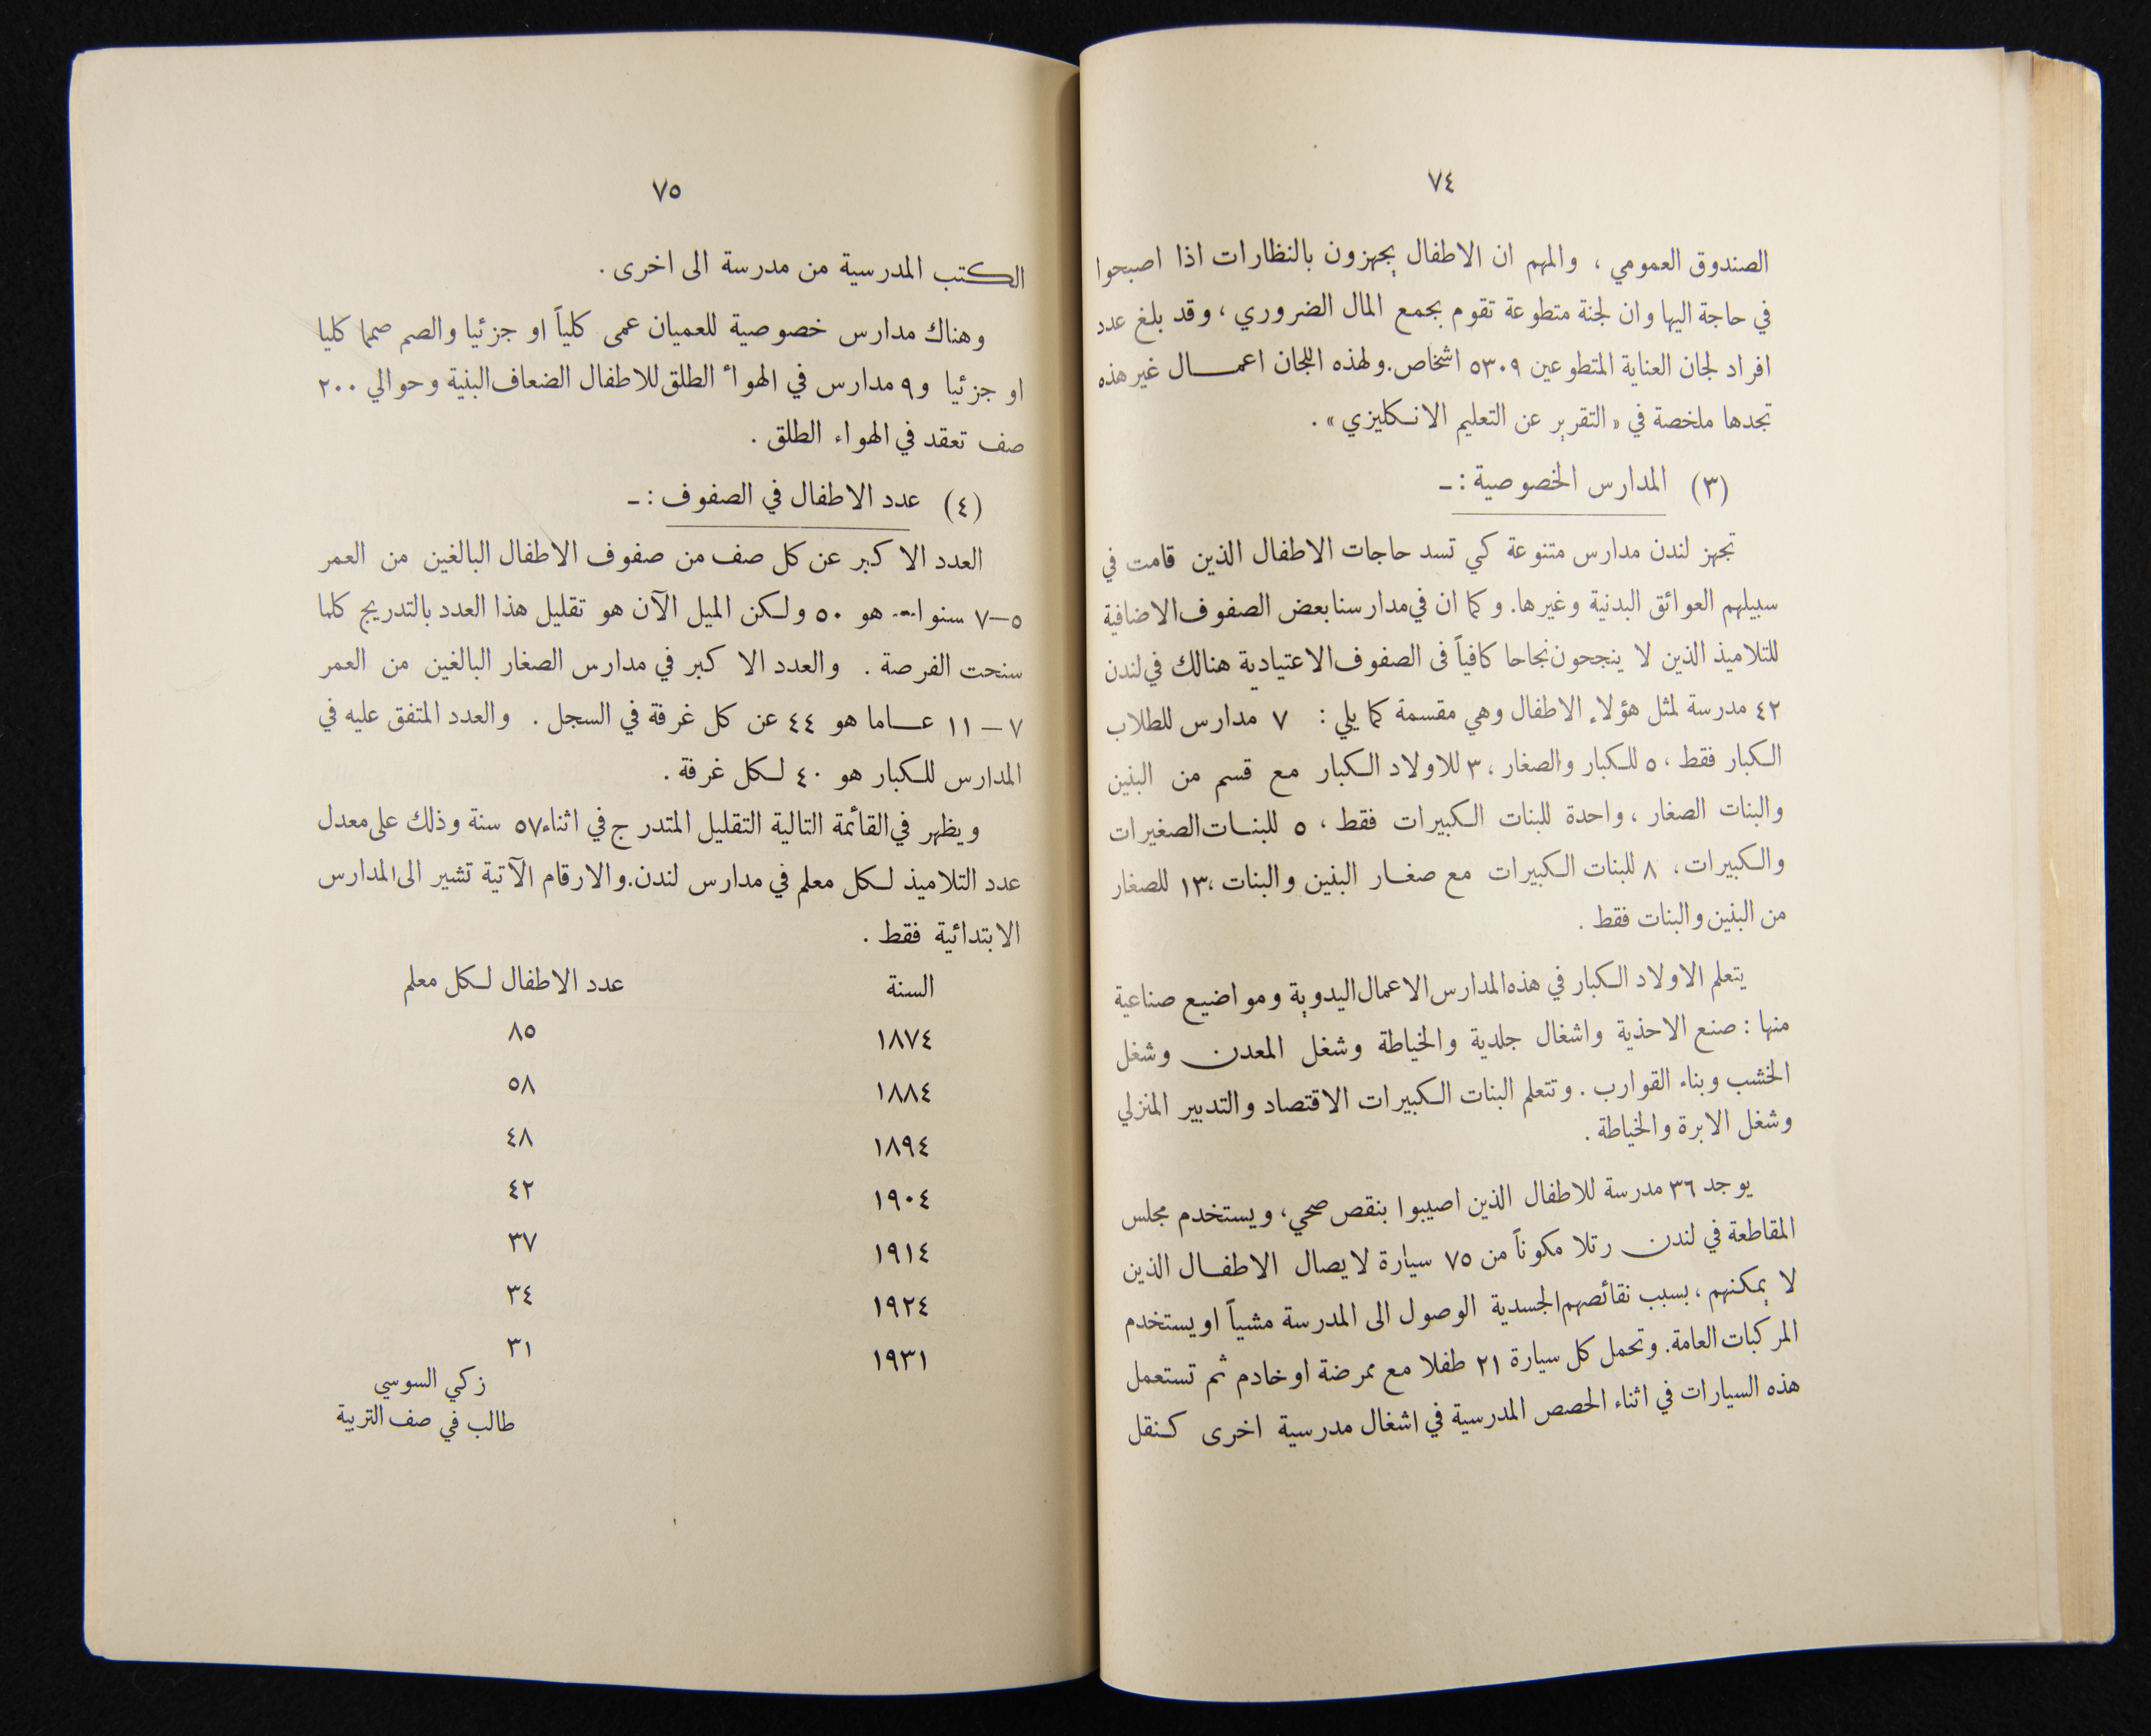 ٧٤
الصندوق العمومي ، والمهم ان الاطفال يجهزون بالنظارات اذا اصبحوا
في حاجة اليها وان لجنة متطوعة تقوم بجمع المال الضروري ، وقد بلغ عدد
افراد لجان العناية المتطوعين ٥٣٠٩ اشخاص. ولهذه اللجان اعمــال غير هذه
تجدها ملخصة في « التقرير عن التعليم الانكليزي » .
(٣) المدارس الخصوصية : ـ
تجهز لندن مدارس متنوعة كي تسد حاجات الاطفال الذين قامت في
سبيلهم العوائق البدنية وغيرها. وكما ان في مدارسنا بعض الصفوف الاضافية
للتلاميذ الذين لا ينجحون نجاحا كافياً فى الصفوف الاعتيادية هنالك في لندن
٤٢ مدرسة لمثل هؤلاء الاطفال وهي مقسمة كما يلي : ٧ مدارس للطلاب
الكبار فقط ، ٥ للكبار والصغار ، ٣ للاولاد الكبار مع قسم من البنين
والبنات الصغار ، واحدة للبنات الكبيرات فقط ، ٥ للبنــات الصغيرات
والكبيرات ، ٨ للبنات الكبيرات مع صغــار البنين والبنات ، ١٣ للصغار
من البنين والبنات فقط .
يتعلم الاولاد الكبار في هذه المدارس الاعمال اليدوية ومواضيع صناعية
منها : صنع الاحذية واشغال جلدية والخياطة وشغل المعدن وشغل
الخشب وبناء القوارب . وتتعلم البنات الكبيرات الاقتصاد والتدبير المنزلي
وشغل الابرة والخياطة .
يوجد ٣٦ مدرسة للاطفال الذين اصيبوا بنقص صحي ، ويستخدم مجلس
المقاطعة في لندن رتلا مكوناً من ٧٥ سيارة لايصال الاطفــال الذين
لا يمكنهم ، بسبب نقائصهم الجسدية الوصول الى المدرسة مشياً او يستخدم
المركبات العامة. وتحمل كل سيارة ٢١ طفلا مع ممرضة او خادم ثم تستعمل
هذه السيارات في اثناء الحصص المدرسية في اشغال مدرسية اخرى كنقل
٧٥
الكتب المدرسية من مدرسة الى اخرى .
وهناك مدارس خصوصية للعميان عمى كلياً او جزئيا والصم صمما كليا
او جزئيا و ٩ مدارس في الهوأ الطلق للاطفال الضعاف البنية وحوالي ٢٠٠
صف تعقد في الهواء الطلق .
(٤) عدد الاطفال في الصفوف : ـ
العدد الاكبر عن كل صف من صفوف الاطفال البالغين من العمر
٥—٧ سنوات هو ٥٠ ولكن الميل الآن هو تقليل هذا العدد بالتدريج كلما
سنحت الفرصة . والعدد الاكبر في مدارس الصغار البالغين من العمر
٧ — ١١ عــاما هو ٤٤ عن كل غرفة في السجل . والعدد المتفق عليه في
المدارس للكبار هو ٤٠ لكل غرفة .
ويظهر في القائمة التالية التقليل المتدرج في اثناء ٥٧ سنة وذلك على معدل
عدد التلاميذ لكل معلم في مدارس لندن. والارقام الآتية تشير الى المدارس
الابتدائية فقط .
السنة عدد الاطفال لكل معلم
١٨٧٤ ٨٥
١٨٨٤ ٥٨
١٨٩٤ ٤٨
١٩٠٤ ٤٢
١٩١٤ ٣٧
١٩٢٤ ٣٤
١٩٣١ ٣١
زكي السوسي
طالب في صف التربية